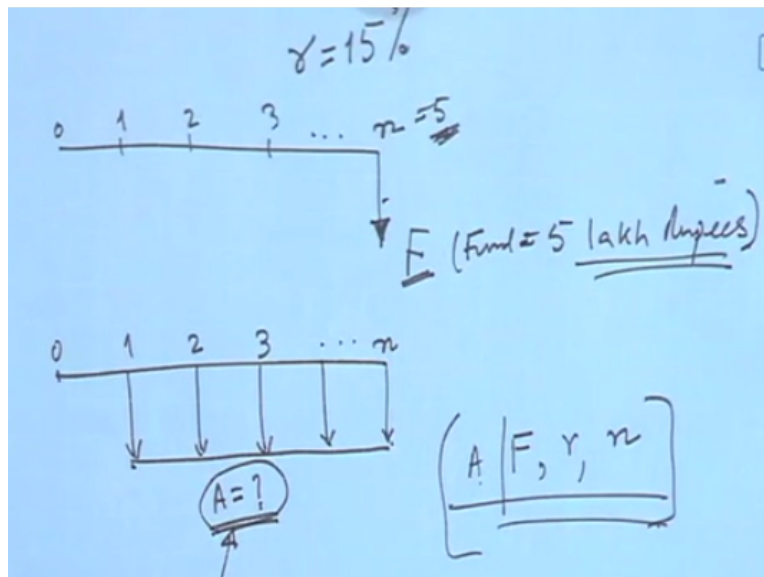 r = 15%
0 1 2 3 ... n = 5
F (Fund = 5 lakh Rupees)
0 1 2 3 ... n
A = ?
(A | F, r, n)